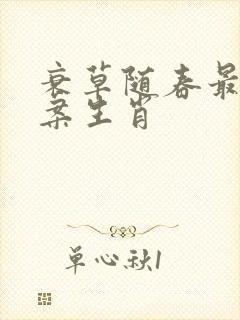 衰草随春最
案生肖
单心秋1